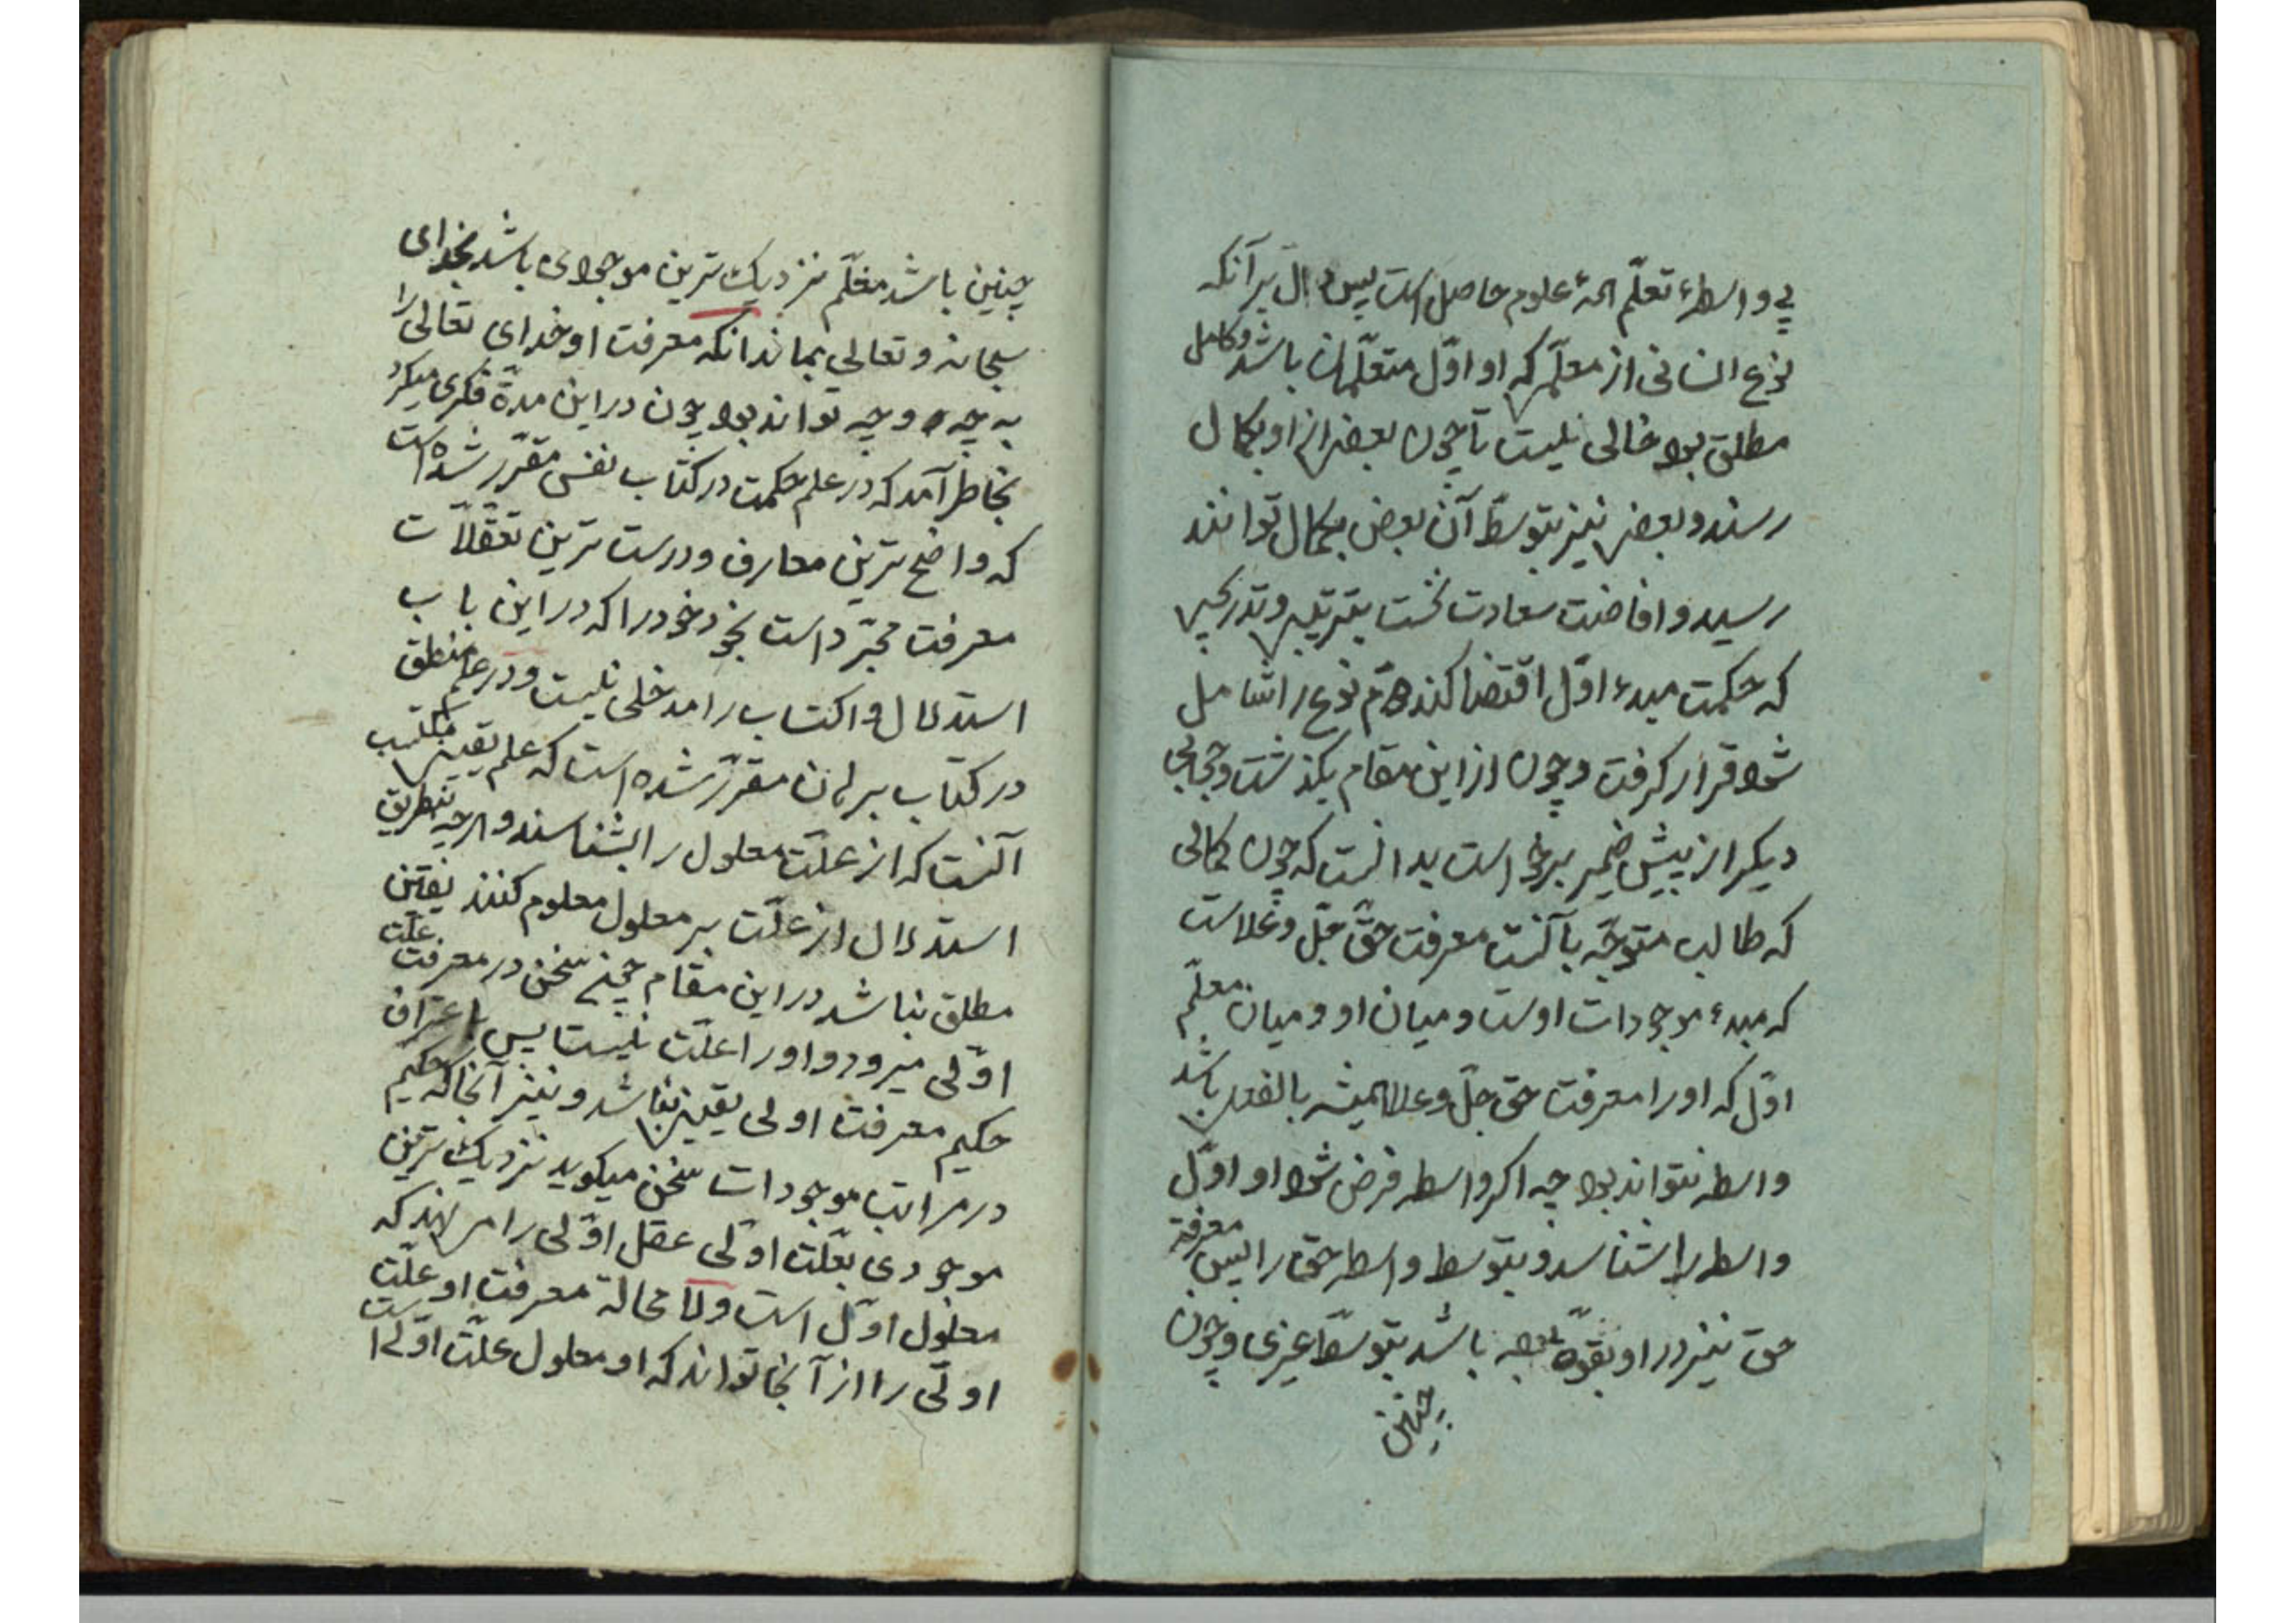 بی واسطهء تعلّم همهٔ علوم حاصل است پس دال بر آنکه
نوع انسانی از معلّمی که او اوّل متعلّمان باشد و کامل
مطلق بود خالی نیست تا چون بعضی از او بکمال
رسند و بعضی نیز بتوسّط آن بعض بکمال توانند
رسید و افاضت سعادت نخست بترتیبی و تدریجی
که حکمت مبدء اوّل اقتضا کند هم نوع را شامل
شود قرار گرفت و چون از این مقام بگذشت و حجابی
دیگر از پیش ضمیر برخواست بدانست که چون کمالی
که طالب متوجّه بآنست معرفت حقّ جلّ و علاست
که مبدء موجودات اوست و میان او و میان معلّم
اوّل که او را معرفت حق جلّ و علا همیشه بالفعل باشد
واسطه نتواند بود چه اگر واسطه فرض شود او اوّل
واسطه را شناسد و بتوسط واسطه حق را پس معرفة
حق نیز در او بقوّه باشد بتوسّط غیری و چون
چنین
چنین باشد معلّم نزدیک ترین موجودی باشد بخدای
سبحانه و تعالی بماند آنکه معرفت او خدای تعالی را
به چه وجه تواند بود چون در این مدّة فکری میکرد
بخاطر آمد که در علم حکمت در کتاب نفس مقرّر شده است
که واضح ترین معارف و درست ترین تعقّلات
معرفت مجرّد است بخود خود را که در این باب
استدلال و اکتساب را مدخلی نیست و در علم منطق
در کتاب برهان مقرّر شده است که علم یقینی مکتسب
آنست که از علّت معلول را بشناسند و هر چه نه بطریق
استدلال از علّت بر معلول معلوم کنند یقین
مطلق نباشد در این مقام چون سخن در معرفت علّت
اوّلی میرود و او را علّت نیست پس باعتراف
حکیم معرفت اولی یقینی نباشد و نیز آنجا که حکیم
در مراتب موجودات سخن میگوید نزدیک ترین
موجودی بعلّت اولی عقل اوّلی را می نهد که
معلول اوّل است ولا محالة معرفت او علّت
اولی را از آنجا تواند که او معلول علّت اولی است